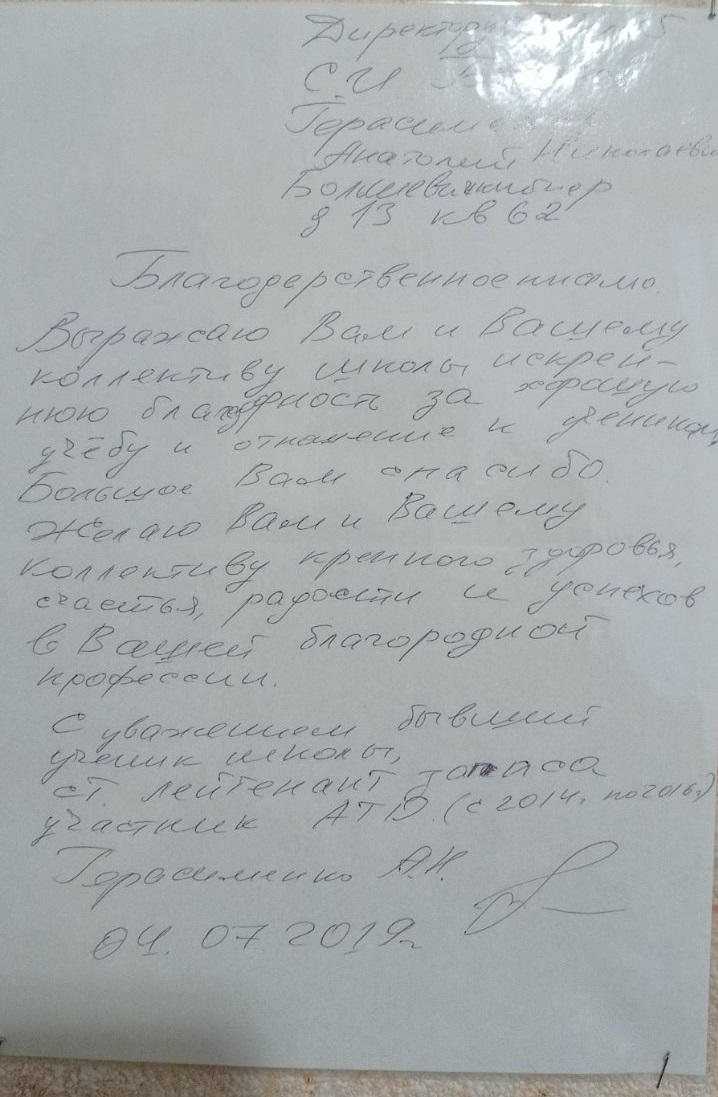 Директору
С.И
Герасименко
Анатолий Николаеви
д 13 кв 62
Благодерственное письмо.
Выражаю Вам и Вашему
коллективу школы искрен-
нюю благодрность за хорошую
учёбу и отношение к ученикам,
Большое Вам спасибо.
Желаю Вам и Вашему
коллективу крепкого здоровья,
счастья, радости и успехов
в Вашей благородной
профессии.
С уважением бывший
ученик школы,
ст. лейтенант запаса
участник АТО. (с 2014г по 2016г)
Герасименко А.Н.
04. 07 2019г